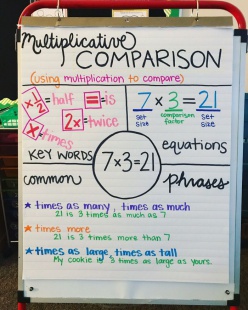 Multiplicative
COMPARISON
(using multiplication to compare)
x 1/2 = half
= = is
x = times
2x = twice
KEY WORDS
7 x 3 = 21
set size
comparison factor
set size
equations
7x3=21
common
phrases
* times as many, times as much
21 is 3 times as much as 7
* times more
21 is 3 times more than 7
* times as large, times as tall
My cookie is 3 times as large as yours.